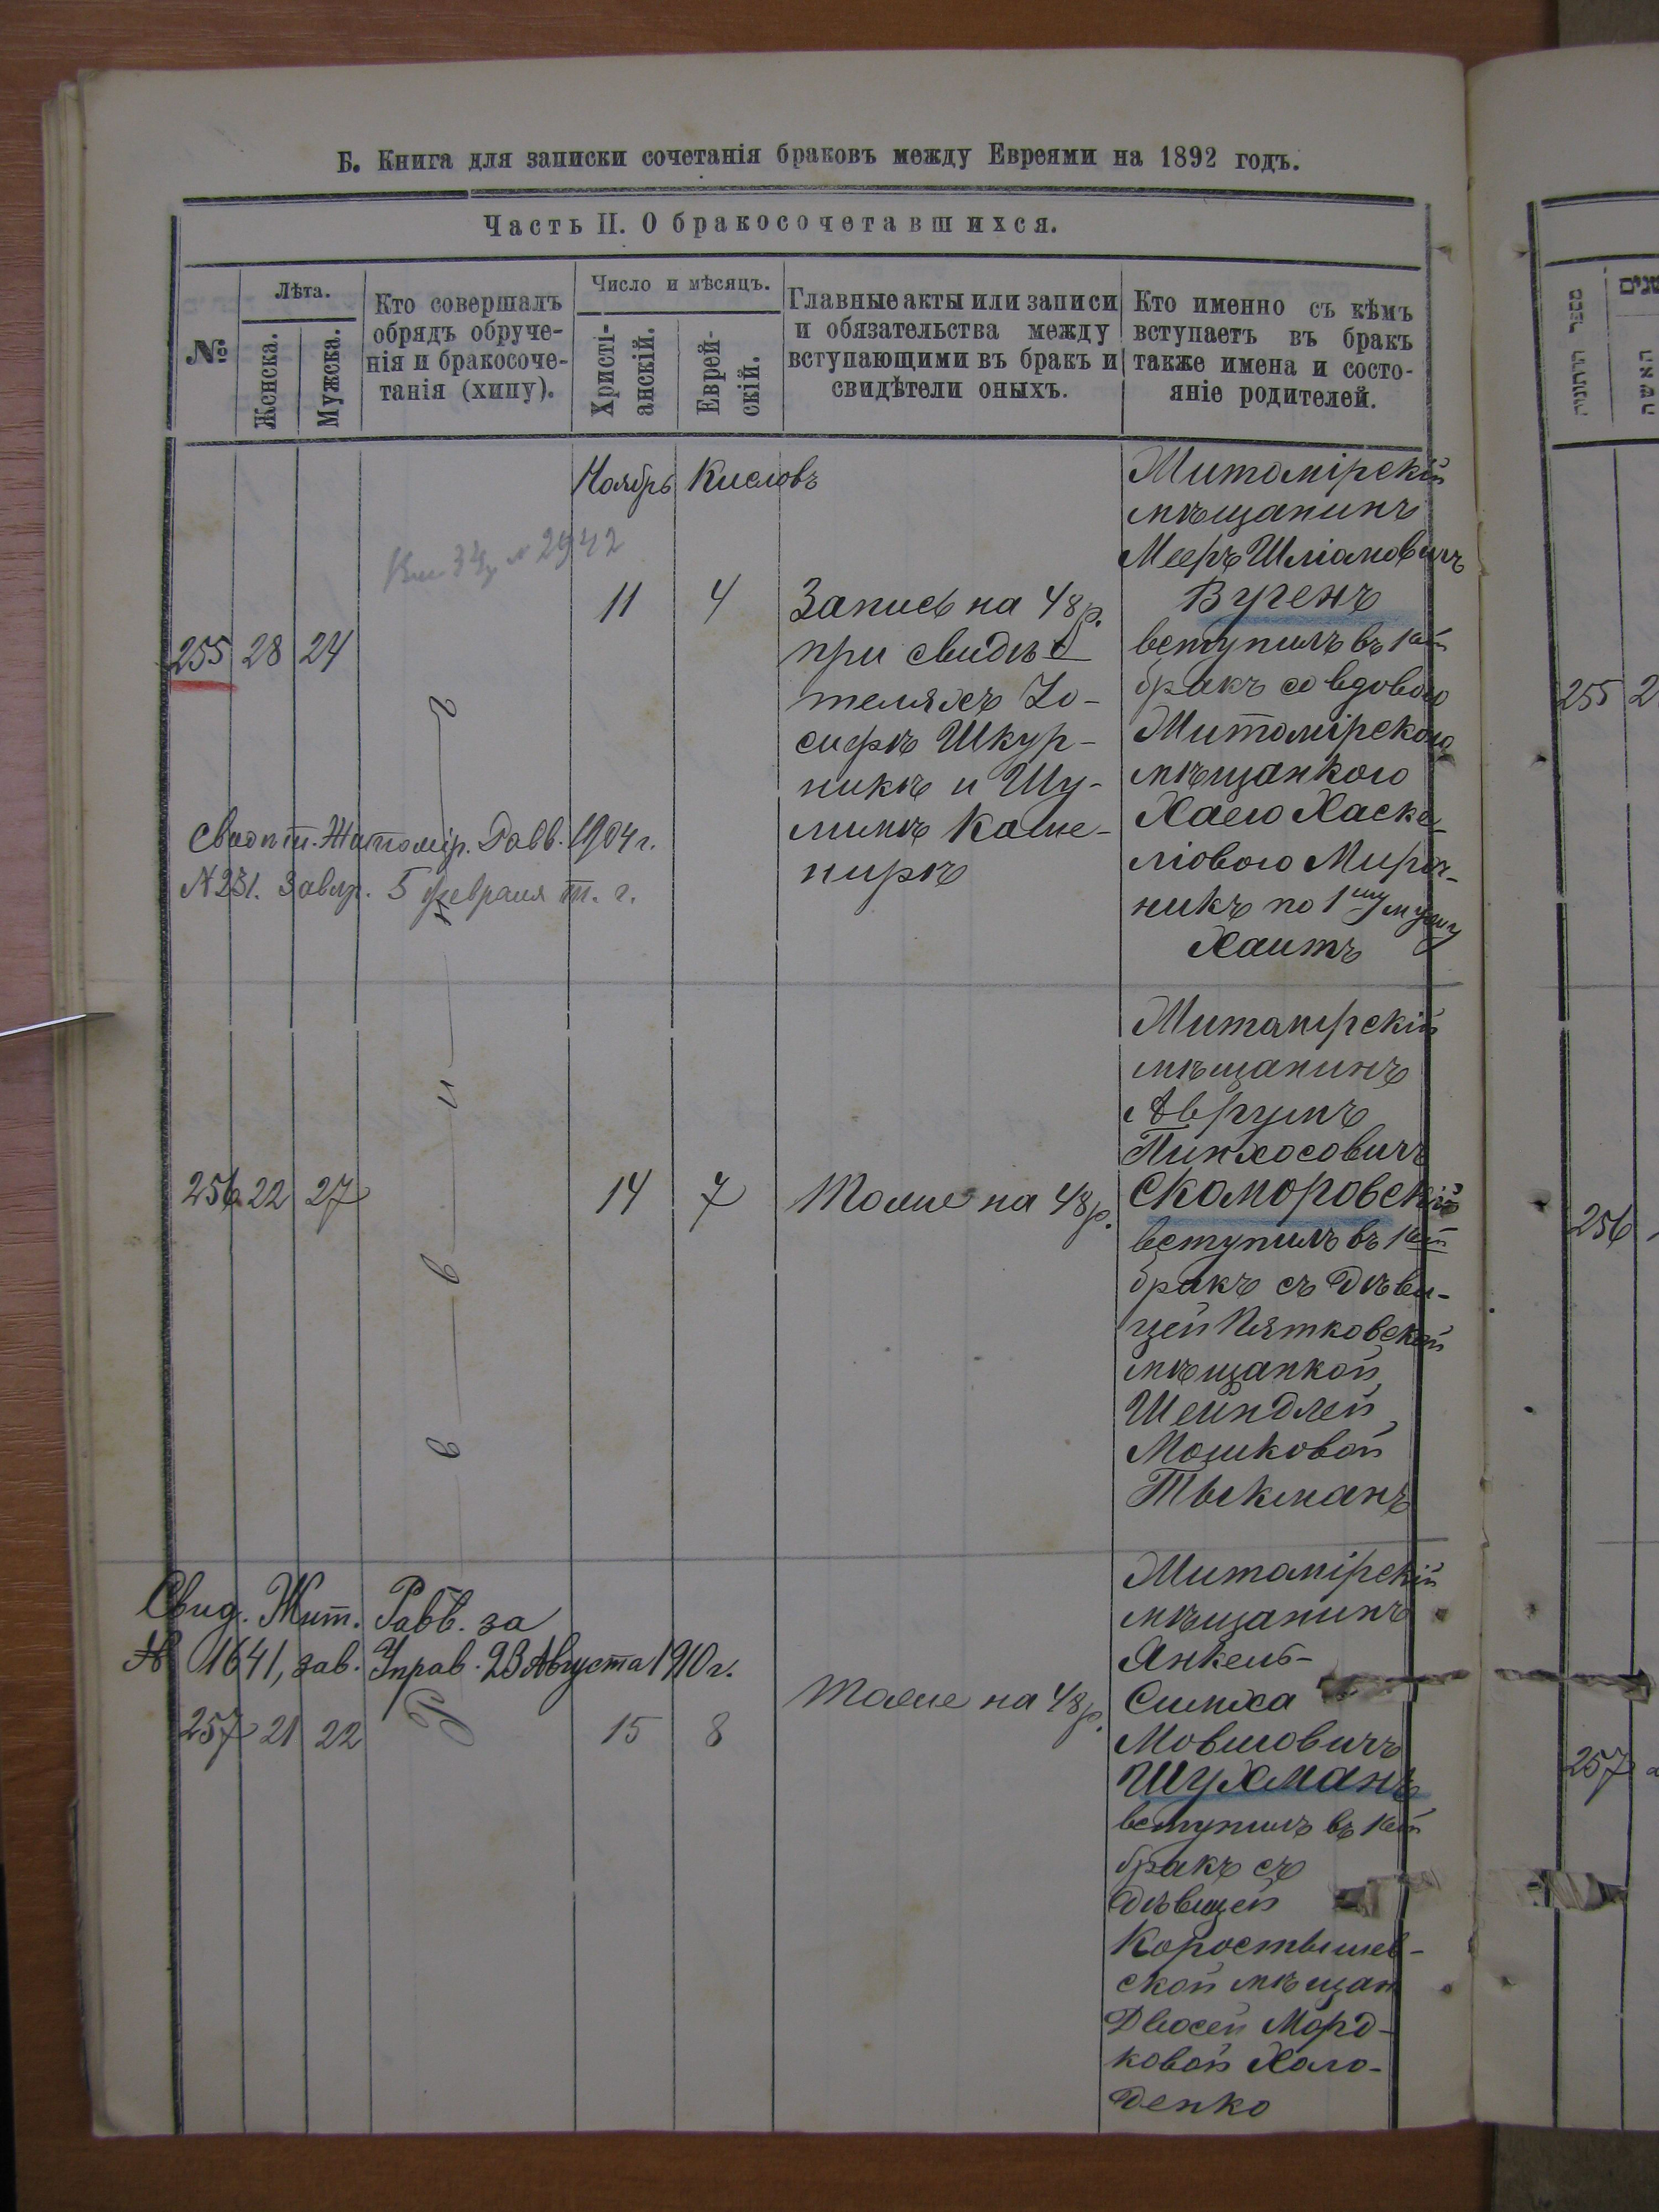 Б. Книга для записки сочетанія браковъ между Евреями на 1892 годъ.
Часть II. О бракосочетавшихся.
№
Лѣта.
Женска.
Мужска.
Кто совершалъ
обрядъ обруче-
нія и бракосоче-
танія (хипу).
Число и мѣсяцъ.
Христі-
анскій.
Еврей-
скій.
Главные акты или записи
и обязательства между
вступающими въ бракъ и
свидѣтели оныхъ.
Кто именно съ кѣмъ
вступаетъ въ бракъ
также имена и состо-
яніе родителей.
Ноябрь Кисловъ
№ 2942
255 28 24
11 4
Запись на 48 р.
при свидѣ-
теляхъ Іо-
сифѣ Шкур-
никѣ и Шу-
лимѣ Каме-
нирѣ
Житомірскій
мѣщанинъ
Мееръ Шліомовичъ
Вугенъ
вступилъ въ 1ый
бракъ со вдовою
Житомірскою
мѣщанкою
Хаею Хаске-
лювою Мироч-
никъ по 1му мужу
Хаитъ
Житомір. Равв. 1904 г.
N 231. Завѣр. 5 февраля т. г.
256 22 27
14 7
Тоже на 48 р.
Житомірскій
мѣщанинъ
Аврумъ
Пинхосовичъ
Скоморовскій
вступилъ въ 1ый
бракъ съ дѣви-
цей Пятковской
мѣщанкой
Шейндлей
Мошковой
Тыкманъ
Свид. Жит. Равв. за
№ 1641, зав. Управ. 23 Августа 1910 г.
257 21 22
15 8
Тоже на 48 р.
Житомірскій
мѣщанинъ
Янкель-
Симха
Мовшовичъ
Шухманъ
вступилъ въ 1ый
бракъ съ
дѣвицей
Коростышев-
ской мѣщан
Двосей Морд-
ковой Холо-
денко
מספר החתונה
שנים
האשה
255 2
256
257